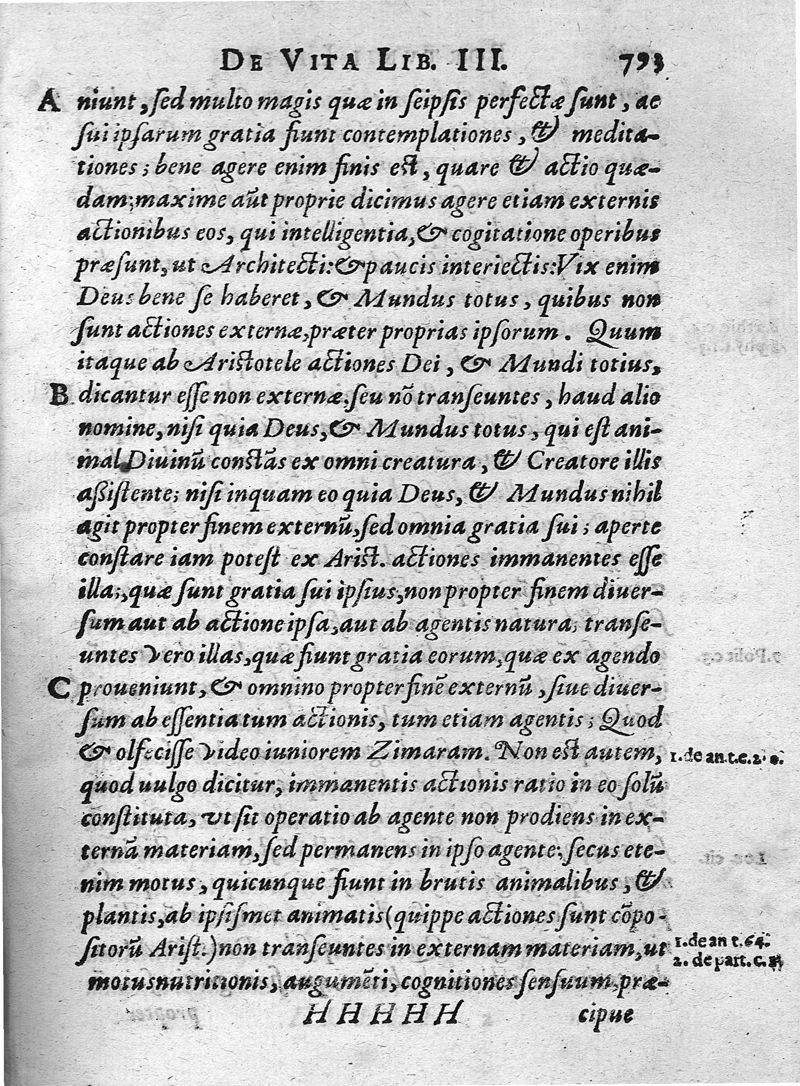 DE VITA LIB. III. 793
A niunt, sed multo magis quæ in seipsis perfectæ sunt, ac
sui ipsarum gratia fiunt contemplationes, & medita-
tiones; bene agere enim finis est, quare & actio quæ-
dam; maxime aũt proprie dicimus agere etiam externis
actionibus eos, qui intelligentia, & cogitatione operibus
præsunt, ut Architecti: & paucis interiectis: Vix enim
Deus bene se haberet, & Mundus totus, quibus non
sunt actiones externæ, præter proprias ipsorum. Quum
itaque ab Aristotele actiones Dei, & Mundi totius,
B dicantur esse non externæ, seu nõ transeuntes, haud alio
nomine, nisi quia Deus, & Mundus totus, qui est ani-
mal Diuinũ constãs ex omni creatura, & Creatore illis
assistente; nisi inquam eo quia Deus, & Mundus nihil
agit propter finem externũ, sed omnia gratia sui; aperte
constare iam potest ex Arist. actiones immanentes esse
illas, quæ sunt gratia sui ipsius, non propter finem diuer-
sum aut ab actione ipsa, aut ab agentis natura; transe-
untes vero illas, quæ fiunt gratia eorum, quæ ex agendo
C proueniunt, & omnino propter finẽ externũ, siue diuer-
sum ab essentia tum actionis, tum etiam agentis; Quod
& olfecisse video iuniorem Zimaram. Non est autem,
1. de an. t.c.2.
quod uulgo dicitur, immanentis actionis ratio in eo solũ
constituta, vt sit operatio ab agente non prodiens in ex-
ternã materiam, sed permanens in ipso agente: secus ete-
nim motus, quicunque fiunt in brutis animalibus, &
plantis, ab ipsismet animatis (quippe actiones sunt cõpo-
sitorũ Arist.) non transeuntes in externam materiam, ut
1. de an t. 64.
2. de part. c.
motus nutritionis, augumẽti, cognitiones sensuum, præ-
HHHHH cipue